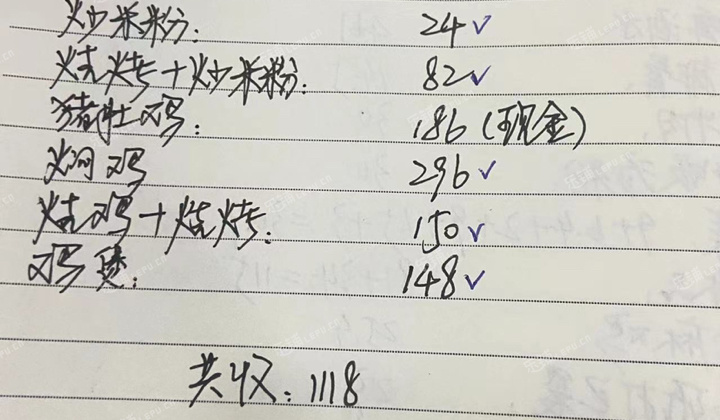 炒米粉： 24✓
烧烤+炒米粉： 82✓
猪肚鸡： 186（现金）
焖鸡 296✓
烧鸡+烧烤： 150✓
鸡煲： 148✓
共收：1118